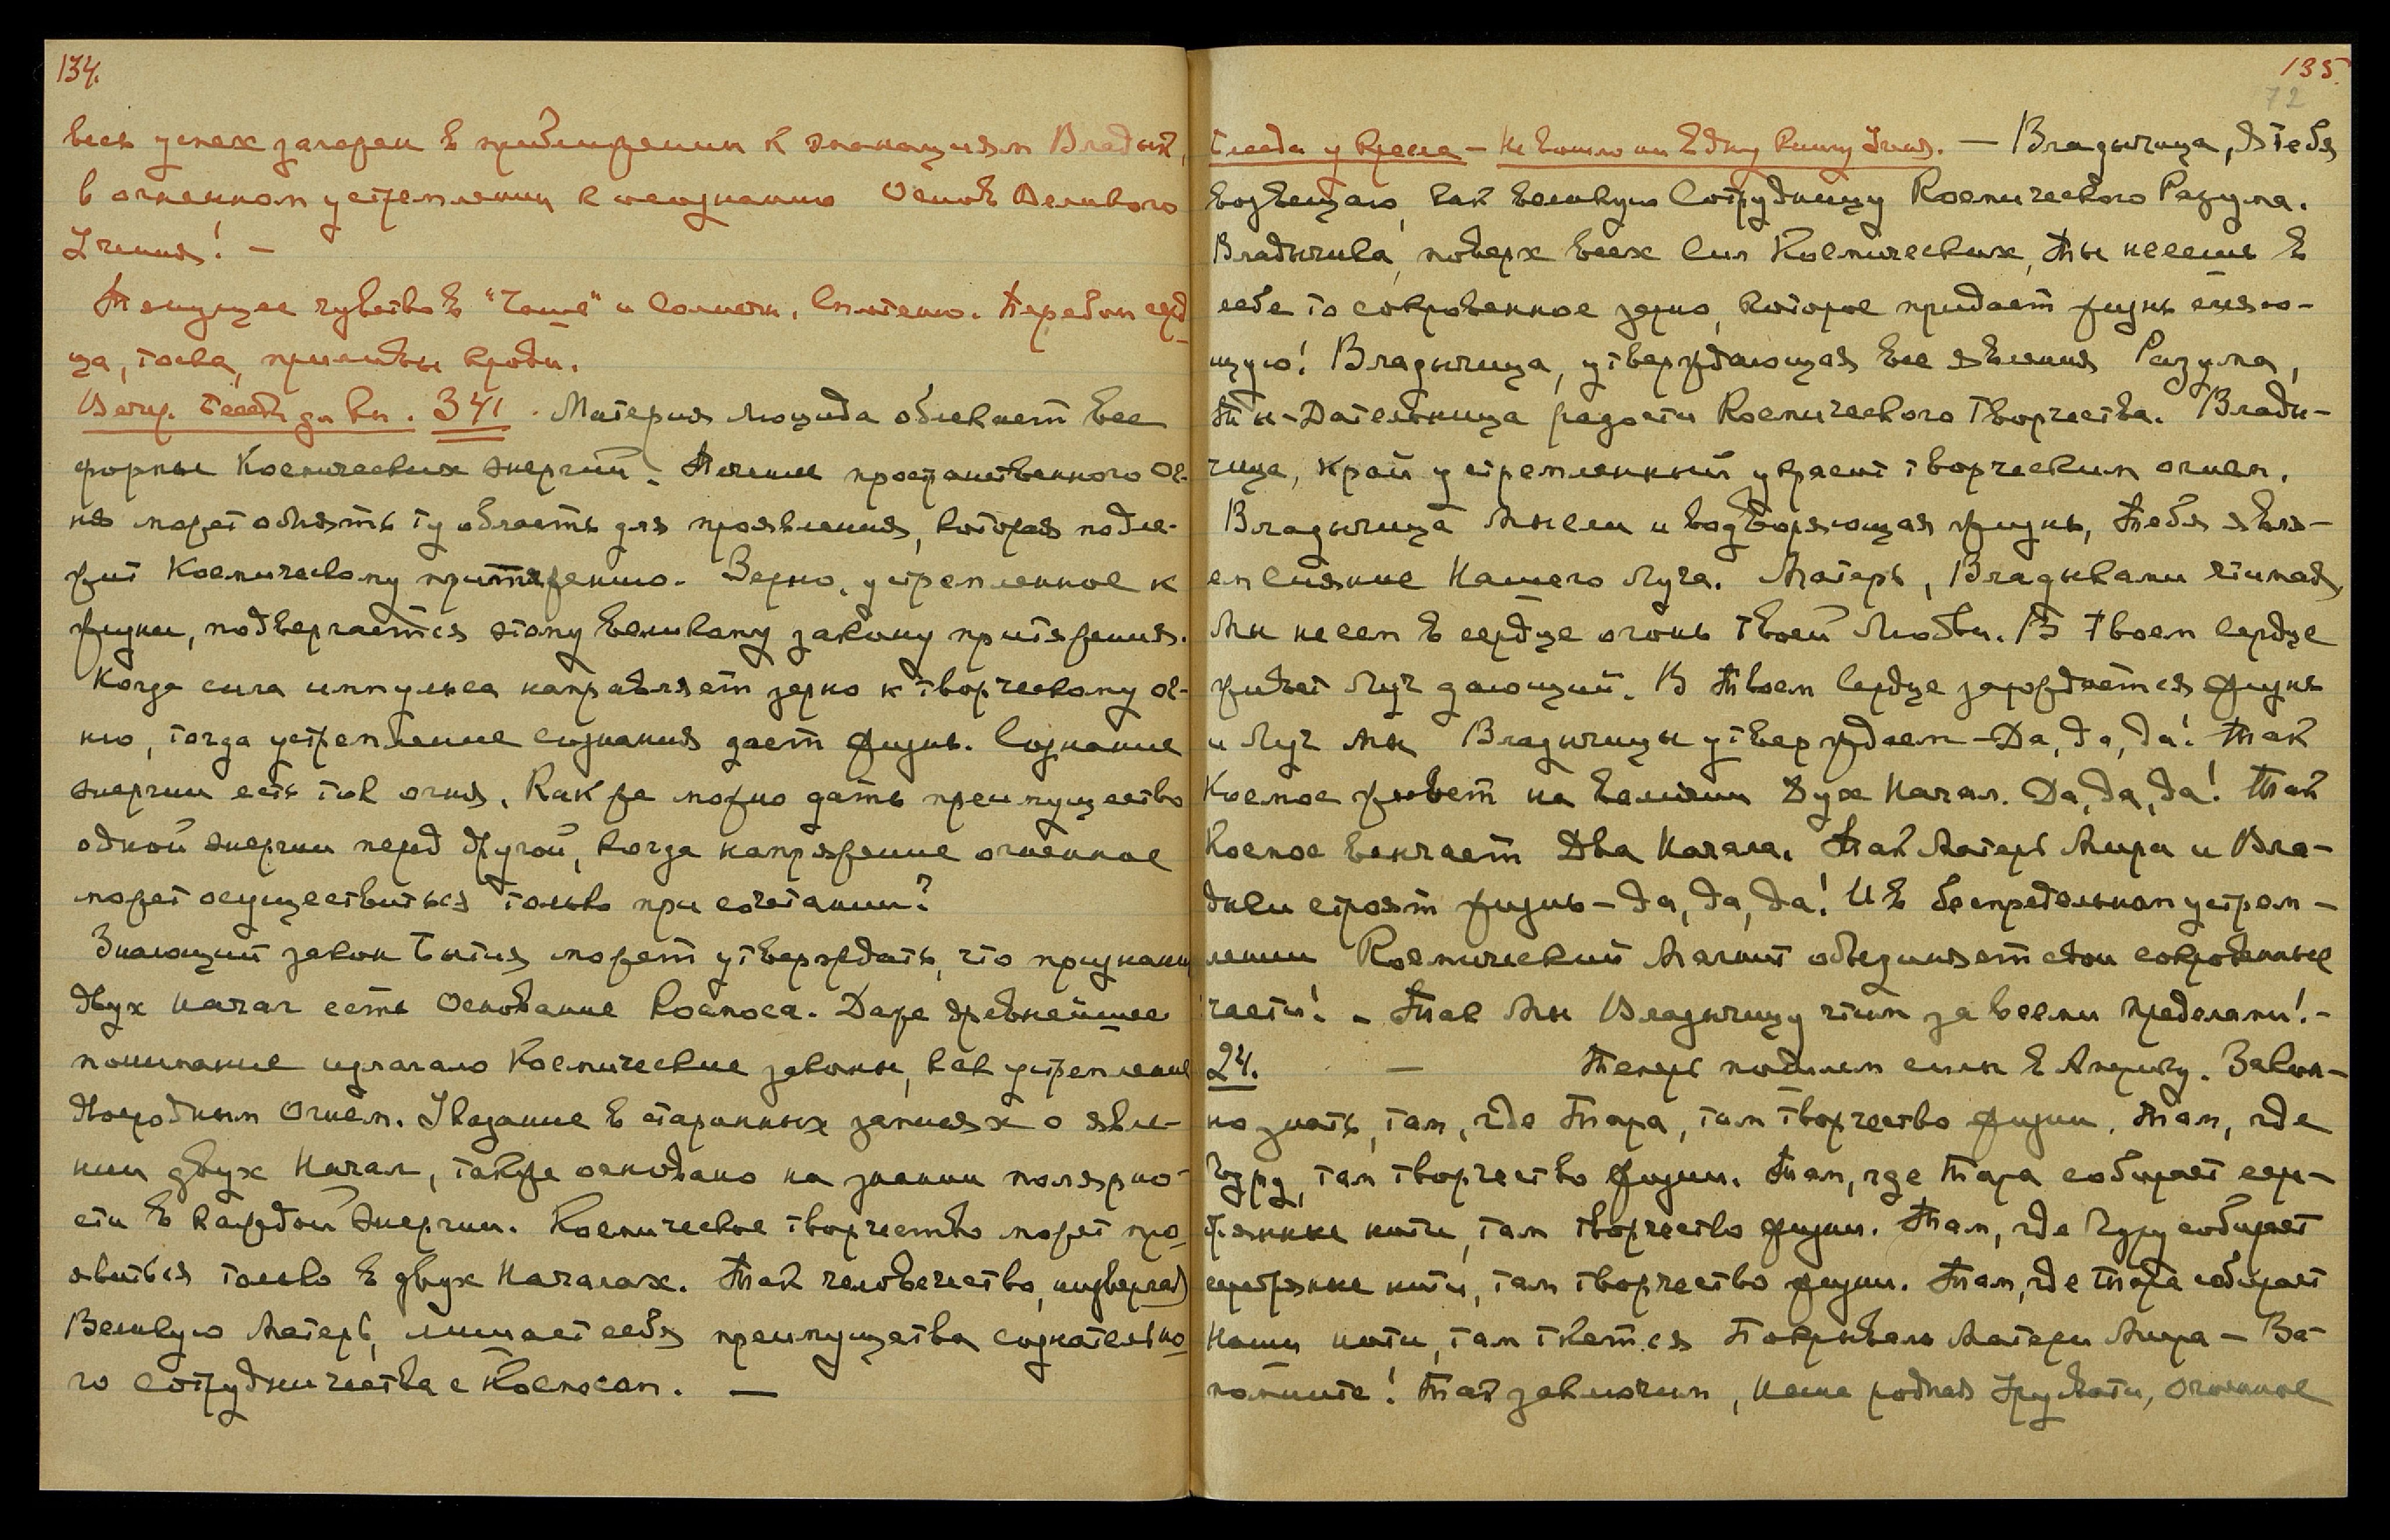 134.
весь успех заложен в приближении к эманациям Владык,
в огненном устремлении к осознанию Основ Великого
Учения! —
Тянущее чувство в "Чаше" и Солнечн. Сплетении. Перебои серд-
ца, тоска, приливы крови.
Вечер. Беседа за кн. 341. Материя Люцида облекает все
формы Космических энергий. Течение пространственного ог-
ня может обнять ту область для проявления, которая подле-
жит Космическому притяжению. Зерно, устремленное к
жизни, подвергается этому великому закону притяжения.
Когда сила импульса направляет зерно к творческому ог-
ню, тогда устремление сознания дает жизнь. Сознание
энергии есть ток огня. Как же можно дать преимущество
одной энергии перед другой, когда напряжение огненное
может осуществиться только при сочетании?
Знающий закон Бытия может утверждать, что признание
двух начал есть Основание Космоса. Даже древнейшее
понимание излагало Космические законы, как устремление
двуродным Огнем. Указание в старинных записях о явле-
нии двух Начал, также основано на знании полярно-
сти в каждой Энергии. Космическое творчество может про-
явиться только в двух Началах. Так человечество, низвергая
Великую Матерь, лишает себя преимущества сознательно-
го сотрудничества с Космосом. —
135.
72
Беседа у кресла — Не вошло ни в одну книгу Учения. — Владычица, Я Тебя
возвещаю, как великую Сотрудницу Космического Разума.
Владычица, поверх всех сил Космических, Ты несешь в
себе то сокровенное зерно, которое придает жизнь сияю-
щую! Владычица, утверждающая все явления Разума,
Ты — Дательница радости Космического Творчества. Влады-
чица, край устремленный украсит творческим огнем.
Владычица Мысли и водворяющая жизнь, Тебе явля-
ем сияние Нашего Луча. Матерь, Владыками чтимая,
Мы несем в сердце огонь Твоей Любви. В Твоем Сердце
живет Луч дающий. В Твоем Сердце зарождается жизнь
и Луч Мы Владычицы утверждаем — Да, да, да! Так
Космос живет на величии Двух Начал. Да, да, да! Так
Космос венчает Два Начала. Так Матерь Мира и Вла-
дыки строят жизнь — да, да, да! И в беспредельном устрем-
лении Космический Магнит объединяет свои сокровенные
части! — Так Мы Владычицу чтим за всеми пределами! —
24. — Теперь пошлем силы в Америку. Закон-
но знать, там, где Тара, там творчество жизни. Там, где
Гуру, там творчество жизни. Там, где Тара собирает сере-
бряные нити, там творчество жизни. Там, где Гуру собирает
серебряные нити, там творчество жизни. Там, где Тара собирает
Наши нити, там ткется Покрывало Матери Мира — За-
помните! Так заключим, Наша родная Урусвати, огненное